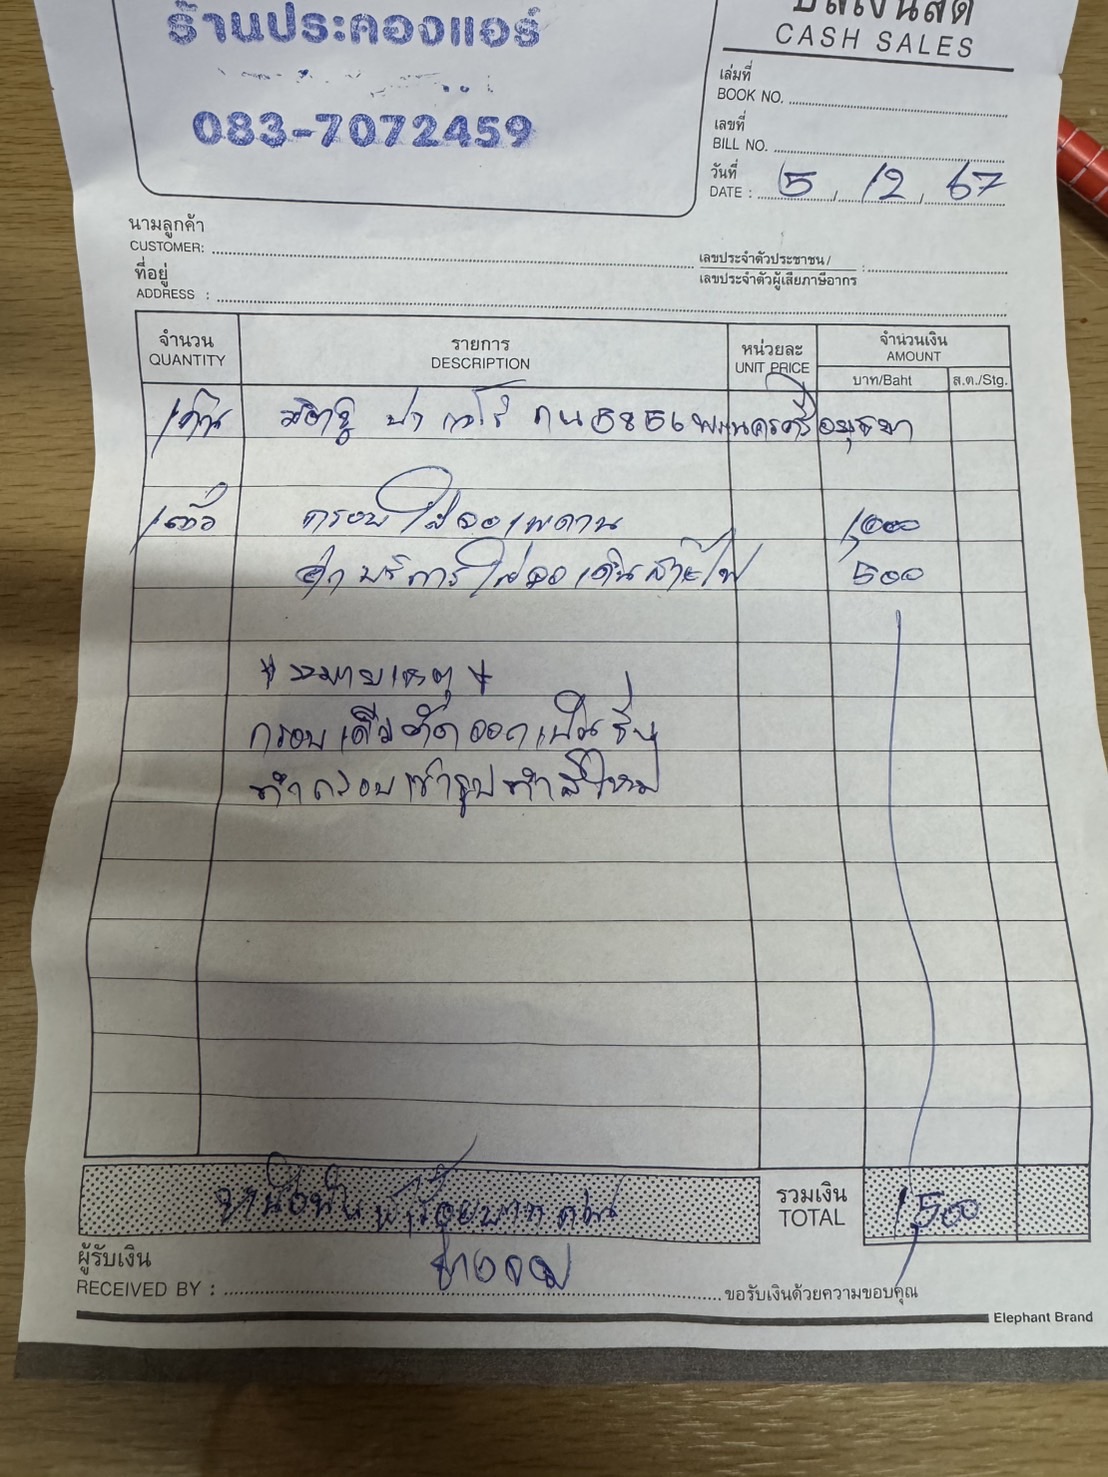 ร้านประคองแอร์
บิลเงินสด
CASH SALES
083-7072459
เล่มที่
BOOK NO.
เลขที่
BILL NO.
วันที่
DATE : 5 / 12 / 67
นามลูกค้า
CUSTOMER:
เลขประจำตัวประชาชน /
เลขประจำตัวผู้เสียภาษีอากร :
ที่อยู่
ADDRESS :
จำนวน รายการ หน่วยละ จำนวนเงิน
QUANTITY DESCRIPTION UNIT PRICE AMOUNT
บาท/Baht ส.ต./Stg.
1คัน มิตซู ปาเจโร่ กน5856พระนครศรีอยุธยา
1ตัว กรอบใส่จอเพดาน 1,000
ค่าบริการใส่จอ เดินสายไฟ 500
*หมายเหตุ*
กรอบเดิมตัดออกเป็นชิ้น
ทำกรอบเข้ารูปทำสีใหม่
หนึ่งพันห้าร้อยบาทถ้วน
รวมเงิน
TOTAL 1,500
ผู้รับเงิน
RECEIVED BY : ขอรับเงินด้วยความขอบคุณ
Elephant Brand